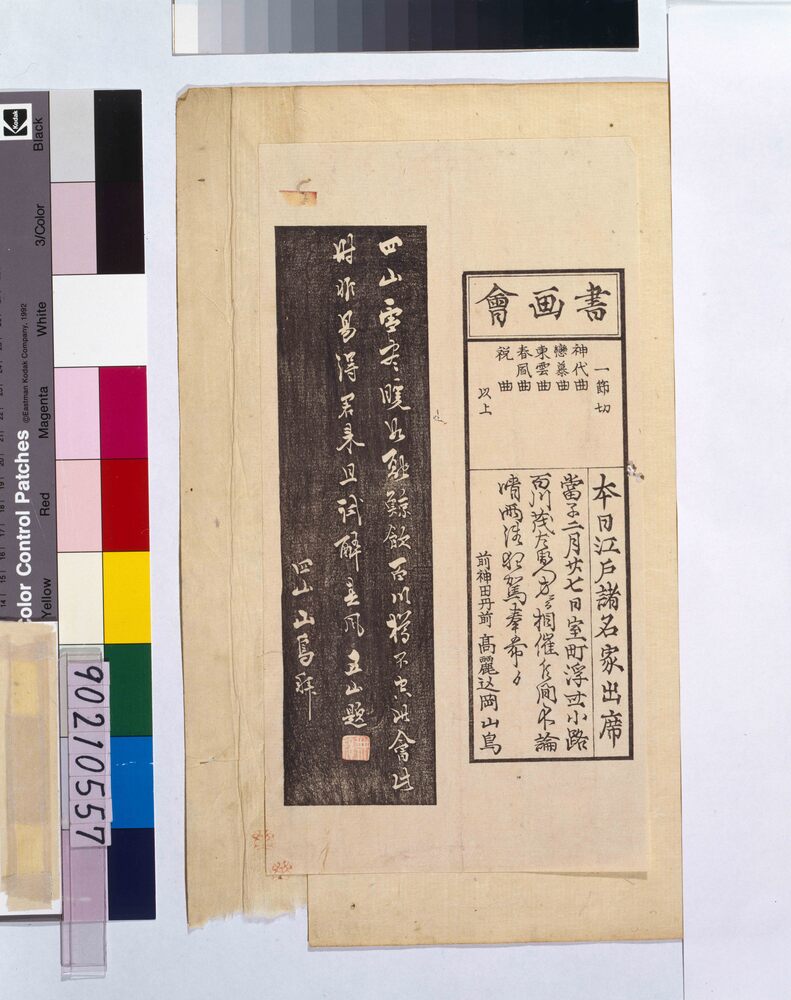 書画會
一節切
神代曲
戀慕曲
東雲曲
春風曲
祝曲
以上
本日江戸諸名家出席
當子二月廿七日室町浮世小路
百川茂左衛門方ニ而相催候間不論
晴雨諸君駕奉希候
前神田丹前 高麗込岡山鳥
四山雪老暖如
鯨飲百川
不
此會此
時非易得君来且
酔春風 五山題
四山山鳥拜
Kodak
Black
3/Color
White
Magenta
Red
Yellow
©Eastman Kodak Company, 1992
Color Control Patches
90210557